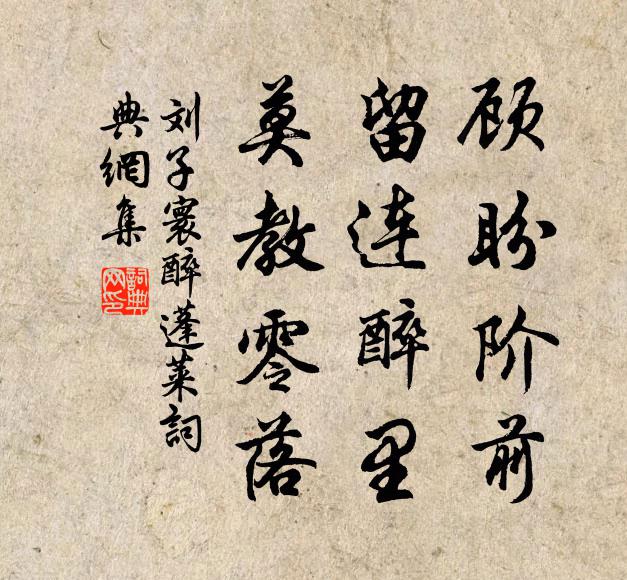 顾盼阶前
留连醉里
莫教零落
刘子寰醉蓬莱詞
典網集
詞典
网印